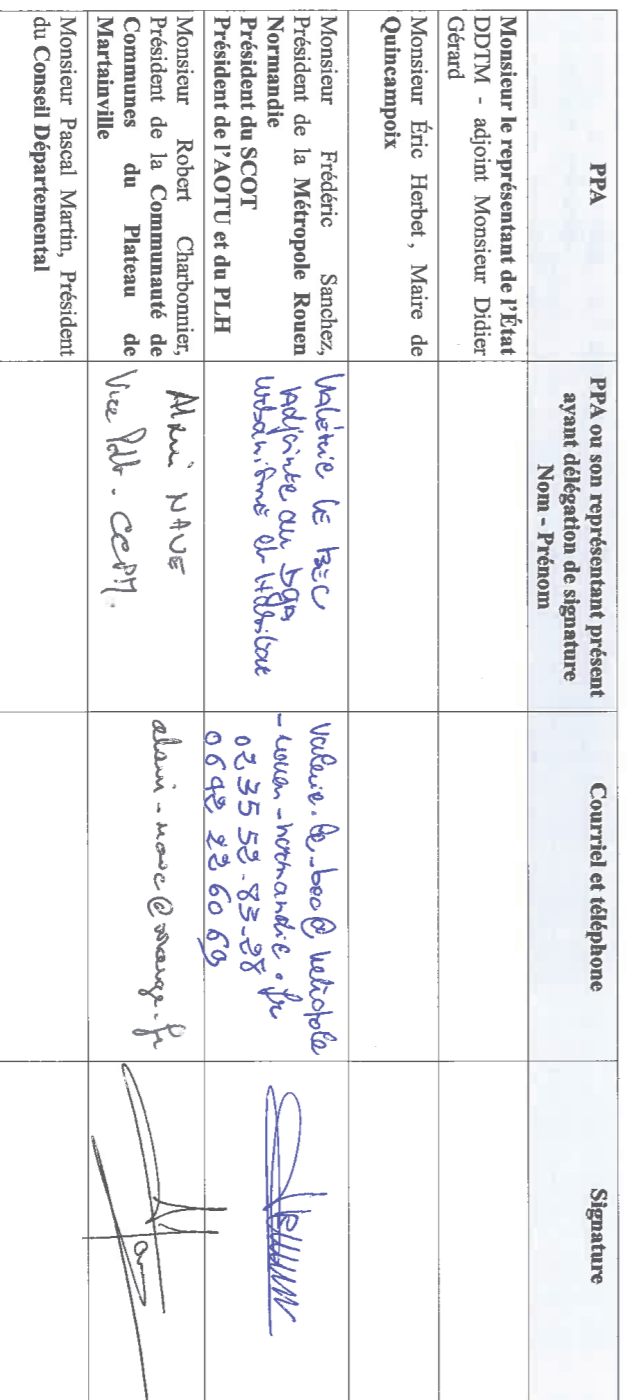 PPA
PPA ou son représentant présent
ayant délégation de signature
Nom - Prénom
Courriel et téléphone
Signature
Monsieur le représentant de l'État
DDTM - adjoint Monsieur Didier
Gérard
Monsieur Éric Herbet , Maire de
Quincampoix
Monsieur Frédéric Sanchez,
Président de la Métropole Rouen
Normandie
Président du SCOT
Président de l'AOTU et du PLH
Valérie LE BEC
adjointe au DGA
urbanisme et Habitat
valerie.le-bec@metropole
-rouen-normandie.fr
02 35 52-83-28
06 42 22 60 69
Monsieur Robert Charbonnier,
Président de la Communauté de
Communes du Plateau de
Martainville
Alain NAVE
Vice Pdt - CCPM.
alain-nave@orange.fr
Monsieur Pascal Martin, Président
du Conseil Départemental